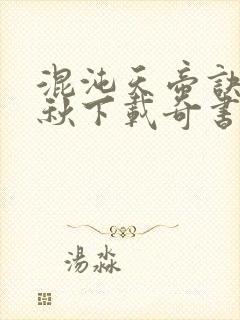 混沌天帝訣
秋下載奇書
湯淼